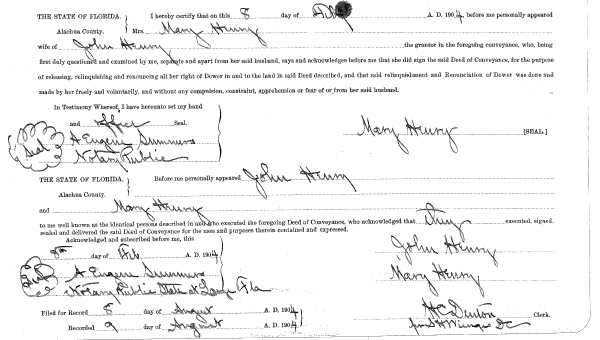 THE STATE OF FLORIDA. } I hereby certify that on this 8 day of Feb A. D. 1904 before me personally appeared
Alachua County. } Mrs. Mary Henry
wife of John Henry the grantor in the foregoing conveyance, who, being
first duly questioned and examined by me, separate and apart from her said husband, says and acknowledges before me that she did sign the said Deed of Conveyance, for the purpose
of releasing, relinquishing and renouncing all her right of Dower in and to the land in said Deed described, and that said relinquishment and Renunciation of Dower was done and
made by her freely and voluntarily, and without any compulsion, constraint, apprehension or fear of or from her said husband.
In Testimony Whereof, I have hereunto set my hand
and office Seal.
Seal
A Eugene Summers
Notary Public
Mary Henry [SEAL]
THE STATE OF FLORIDA. } Before me personally appeared John Henry
Alachua County. }
and Mary Henry
to me well known as the identical persons described in and who executed the foregoing Deed of Conveyance, who acknowledged that they executed, signed,
sealed and delivered the said Deed of Conveyance for the uses and purposes therein contained and expressed.
Acknowledged and subscribed before me, this
8th day of Feb A. D. 1904
John Henry
Seal
A Eugene Summers
Mary Henry
Notary Public State at Large Fla
Filed for Record 8 day of August A. D. 1904
H C Denton Clerk.
Recorded 9 day of August A. D. 1904
DC